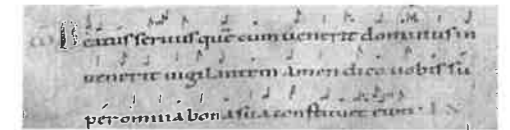 Beatus servus que cum venerit dominus in
venerit vigilantem amen dico vobis sū
per omnia bona sua constituet eum